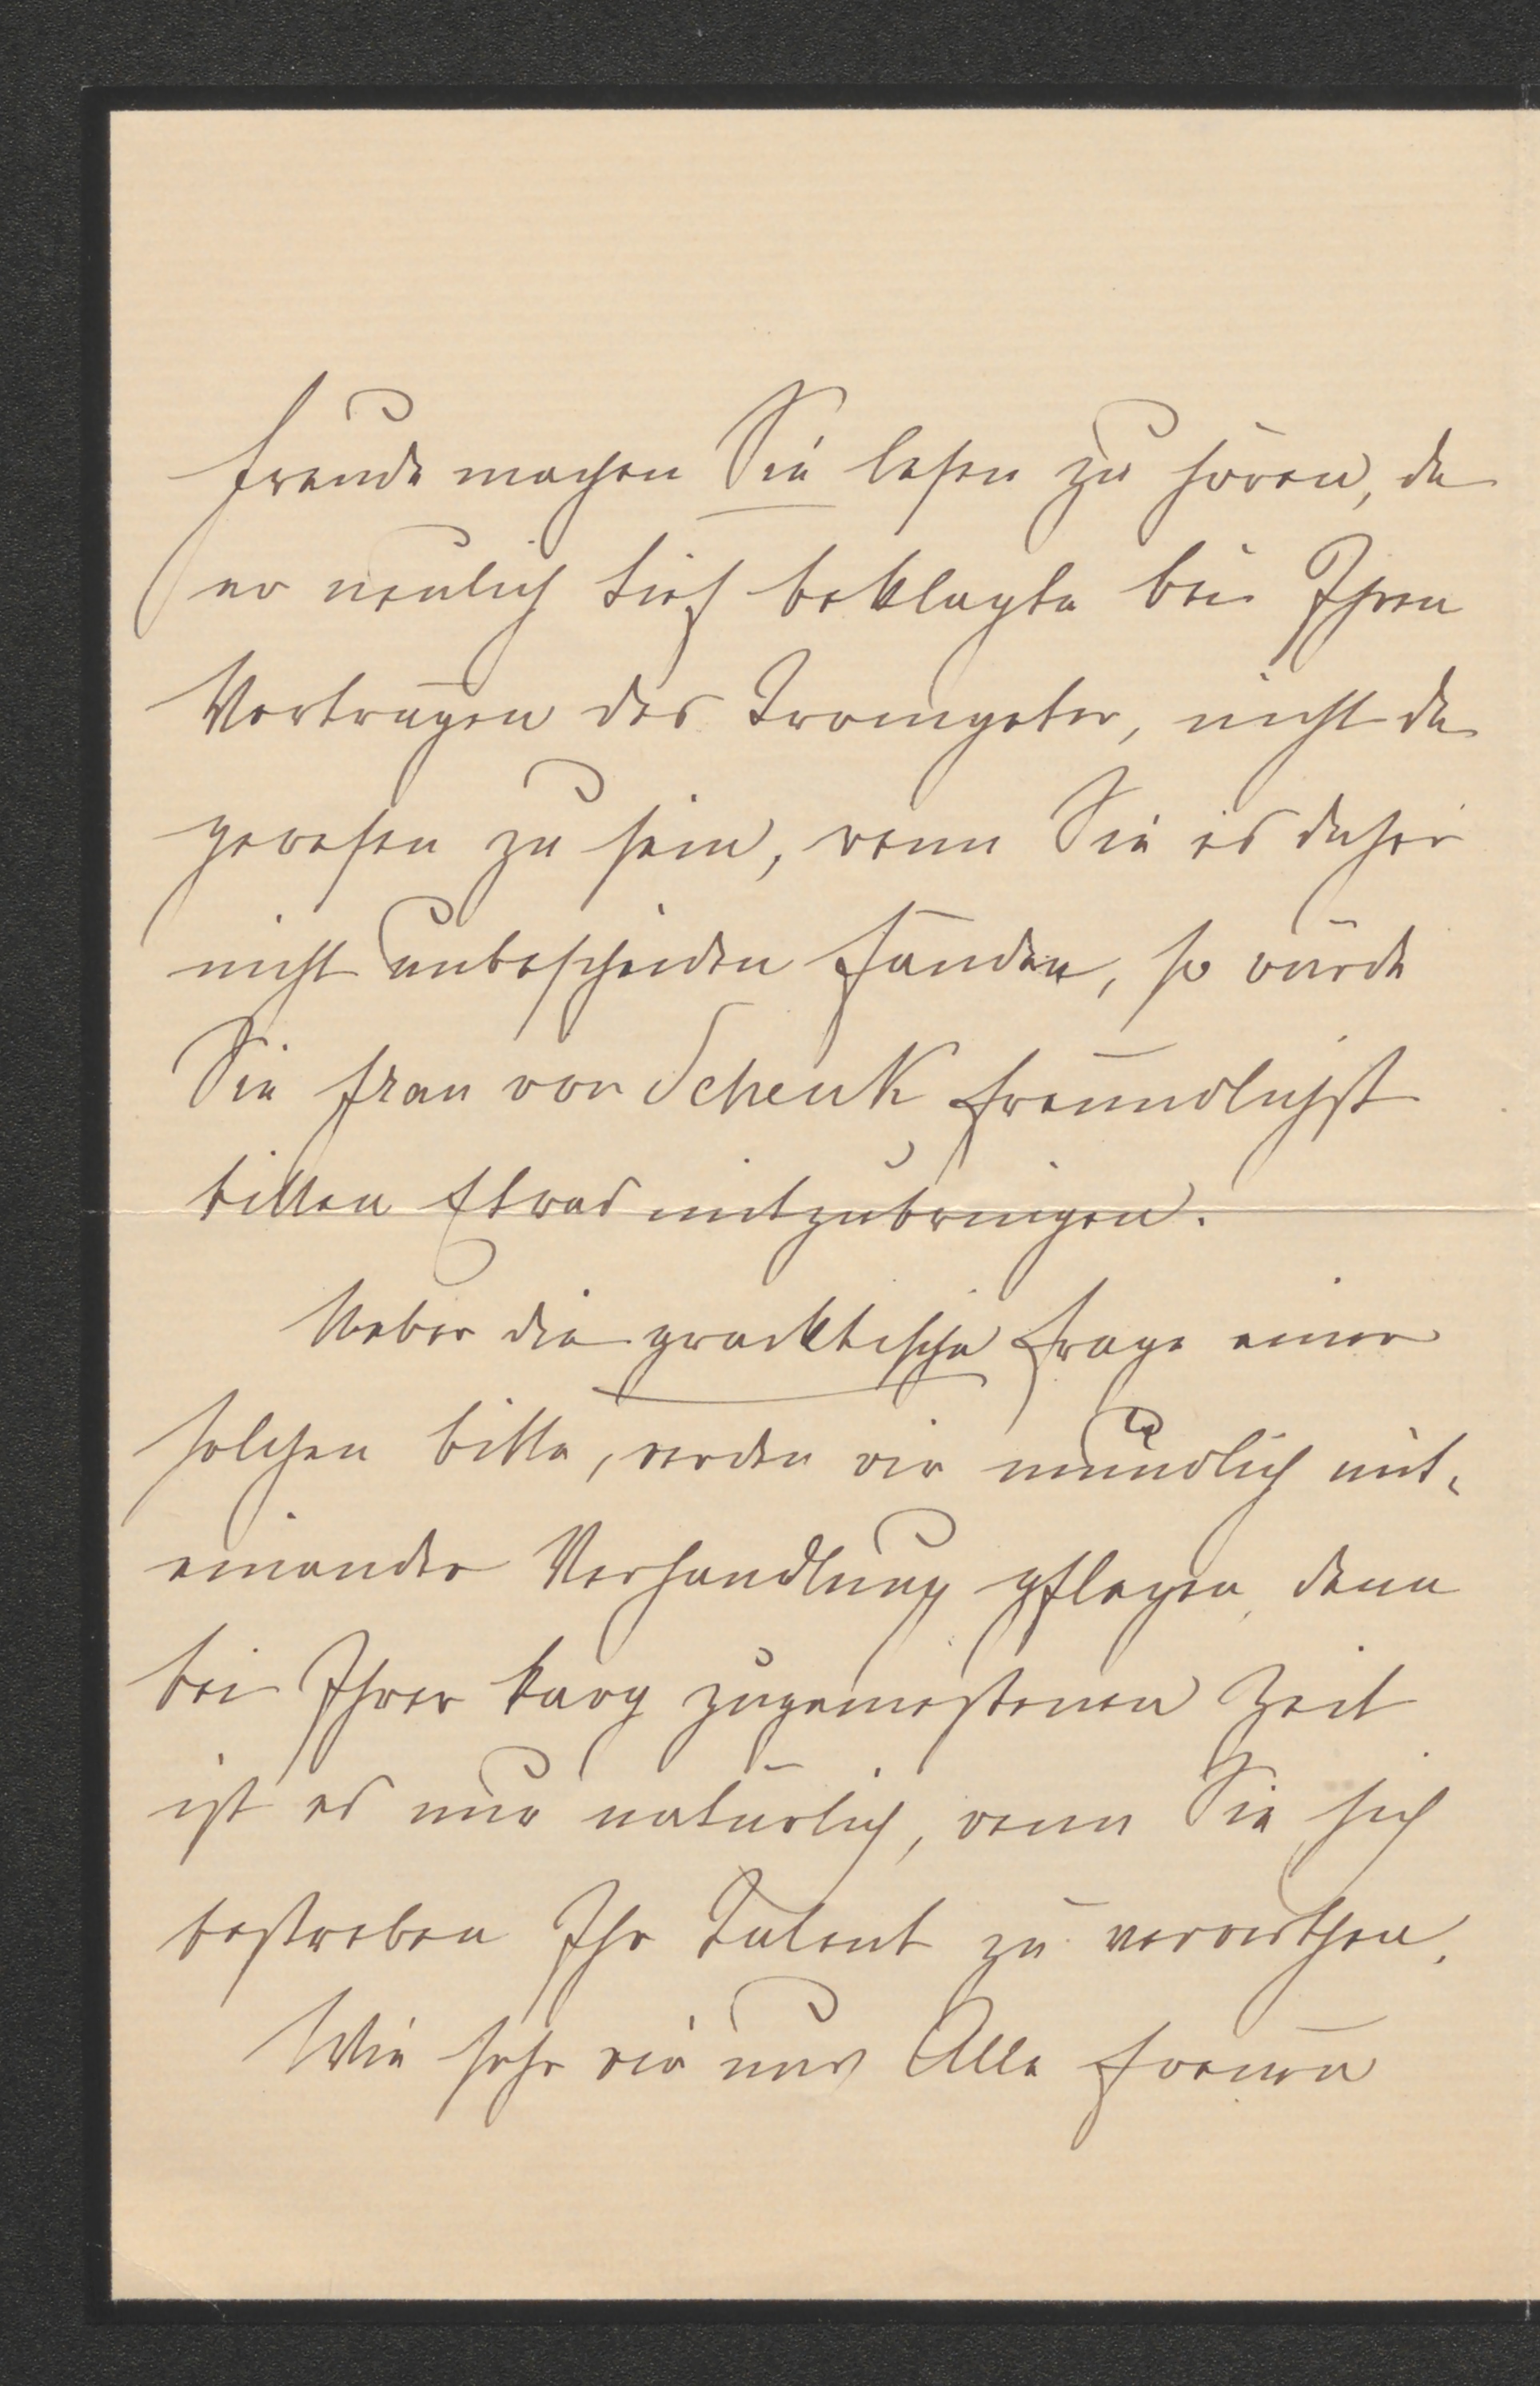 Freude machen Sie lesen zu hören, da
er neulich tief beklagte bei Ihren
Vorträgen des Trompeter, nicht da
gewesen zu sein, wenn Sie es daher
nicht unbescheiden fänden, so würde
Sie Frau von Schenk freundlichst
bitten Etwas mitzubringen.
Ueber die pracktische Frage einer
solchen bitte, werden wir mündlich mit-
einander Verhandlung pflegen, denn
bei Ihrer karg zugemessenen Zeit
ist es nur natürlich, wenn Sie sich
bestreben Ihr Talent zu verwerthen.
Wie sehr wir uns Alle freuen